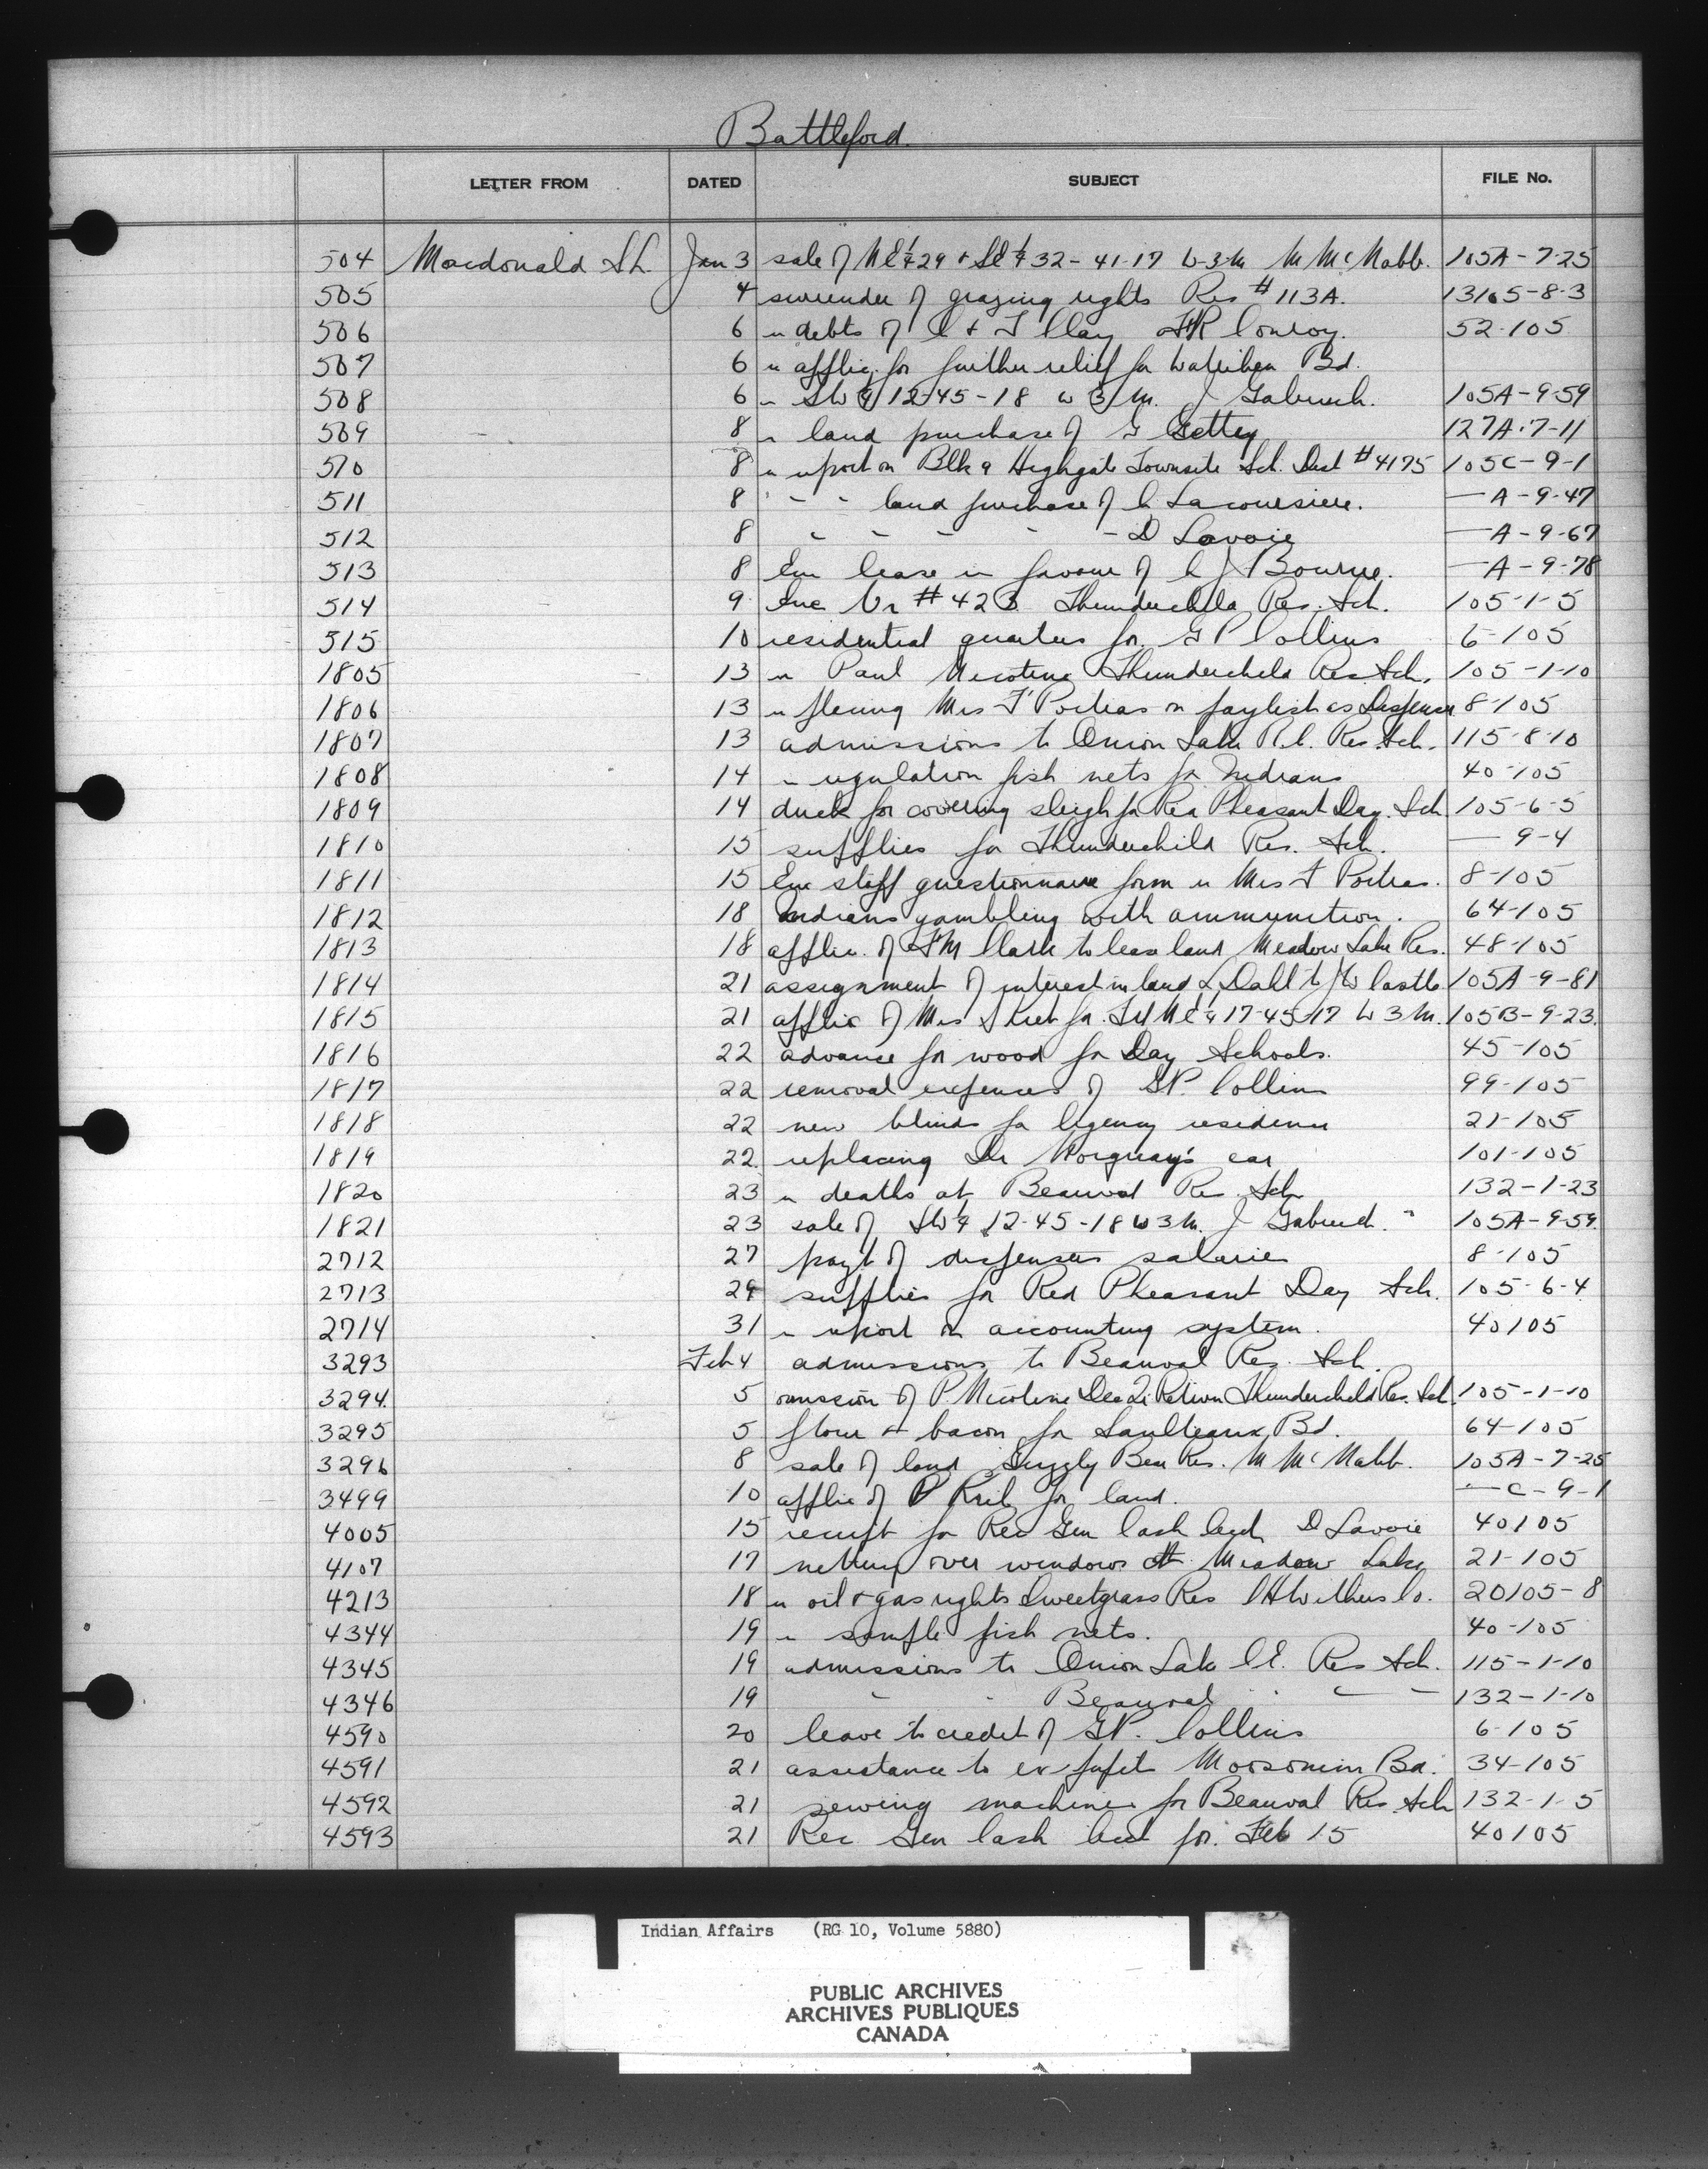 Battleford.
LETTER FROM DATED SUBJECT FILE No.
504 Macdonald S.L. Jan 3 sale of NE¼29 + SE¼32-41-17 W-3-M M McNabb. 105A-7-25
505 4 surrender of grazing rights Res #113A. 13105-8-3
506 6 debts of & Clay Conroy. 52-105
507 6 applic. for further relief for Waterhen Bd.
508 6 SW¼ 12-45-18 W 3 M. J Gabruch. 105A-9-59
509 8 land purchase of G Gettey 127A-7-11
510 8 report on Blk 9 Highgate Townsite Sch. Dist #4175 105C-9-1
511 8 " - - land purchase of C Lacoursiere. —A-9-47
512 8 " - - - - D Lavoie —A-9-67
513 8 Enc lease in favour of C J Bourne. —A-9-78
514 9 Enc Vr #423 Thunderchild Res. Sch. 105-1-5
515 10 residential quarters for G P Collins 6-105
1805 13 Paul Nicotine Thunderchild Res. Sch. 105-1-10
1806 13 placing Mrs F Poitras on paylist as Dispenser 8-105
1807 13 admissions to Onion Lake R.C. Res. Sch. 115-8-10
1808 14 regulation fish nets for Indians 40-105
1809 14 duck for covering sleigh for Red Pheasant Day. Sch 105-6-5
1810 15 supplies for Thunderchild Res. Sch. — 9-4
1811 15 Enc staff questionnaire form Mrs F Poitras. 8-105
1812 18 Indians gambling with ammunition. 64-105
1813 18 applic. of F M Clark to lease land Meadow Lake Res. 48-105
1814 21 assignment of interest in land L Dahl to J W Castle 105A-9-81
1815 21 applic of Mrs for NE¼ 17-45-17 W 3 M. 105B-9-23.
1816 22 advance for wood for Day Schools. 45-105
1817 22 removal expenses of G.P. Collins 99-105
1818 22 new blinds for Agency residence 21-105
1819 22. replacing Dr Norquay's car 101-105
1820 23 deaths at Beauval Res. Sch 132-1-23
1821 23 sale of SW¼ 12-45-18 W 3 M. J Gabruch. 105A-9-59.
2712 27 payt of dispensers salaries 8-105
2713 29 supplies for Red Pheasant Day Sch. 105-6-4
2714 31 report on accounting system. 40105
3293 Feb 4 admissions to Beauval Res. Sch.
3294. 5 omission of P. Nicotine Dec Qr Return Thunderchild Res. Sch. 105-1-10
3295 5 flour & bacon for Saulteaux Bd. 64-105
3296 8 sale of land Grizzly Bear Res. M McNabb. 105A-7-25
3499 10 applic of P for land. —C-9-1
4005 15 receipt for Rec Gen Cash D Lavoie 40105
4107 17 netting over windows at Meadow Lake 21-105
4213 18 oil & gas rights Sweetgrass Res C H Withers Co. 20105-8
4344 19 sample fish nets. 40-105
4345 19 admissions to Onion Lake C.E. Res Sch. 115-1-10
4346 19 " " Beauval " — — 132-1-10
4590 20 leave to credit of G.P. Collins 6-105
4591 21 assistance to ex pupil Moosomin Bd. 34-105
4592 21 sewing machine for Beauval Res. Sch 132-1-5
4593 21 Rec Gen Cash for. Feb 15 40105
Indian Affairs (RG 10, Volume 5880)
PUBLIC ARCHIVES
ARCHIVES PUBLIQUES
CANADA